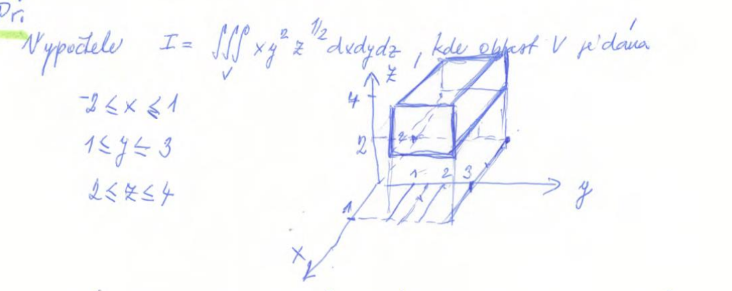 Př.
Vypočtěte I = ∭ xy² z^1/2 dxdydz, kde oblast V je dána
V
-2 ≤ x ≤ 1
1 ≤ y ≤ 3
2 ≤ z ≤ 4
z
4
2
-2
1 2 3
y
1
x